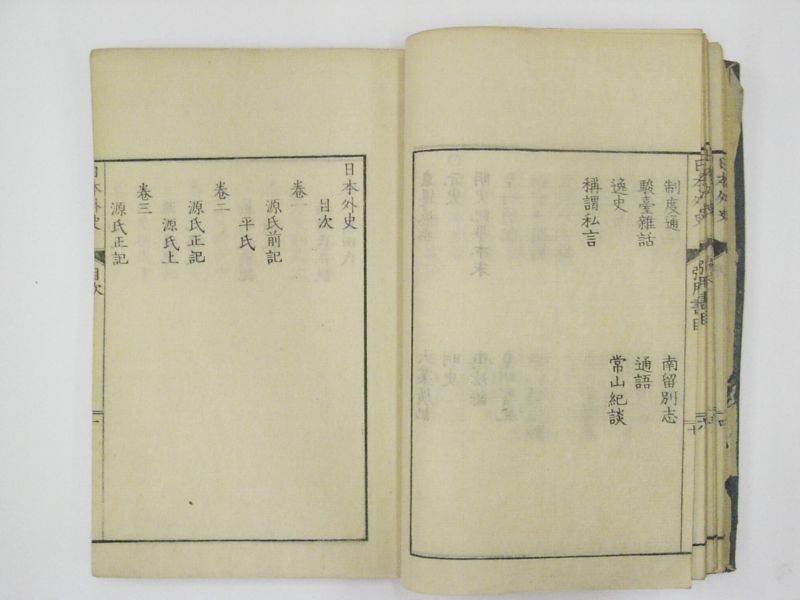 制度通
南留別志
駿臺雜話
通語
逸史
常山紀談
稱謂私言
日本外史
目次
卷一
源氏前記
平氏
卷二
源氏正記
源氏上
卷三
源氏正記
日本外史
目次